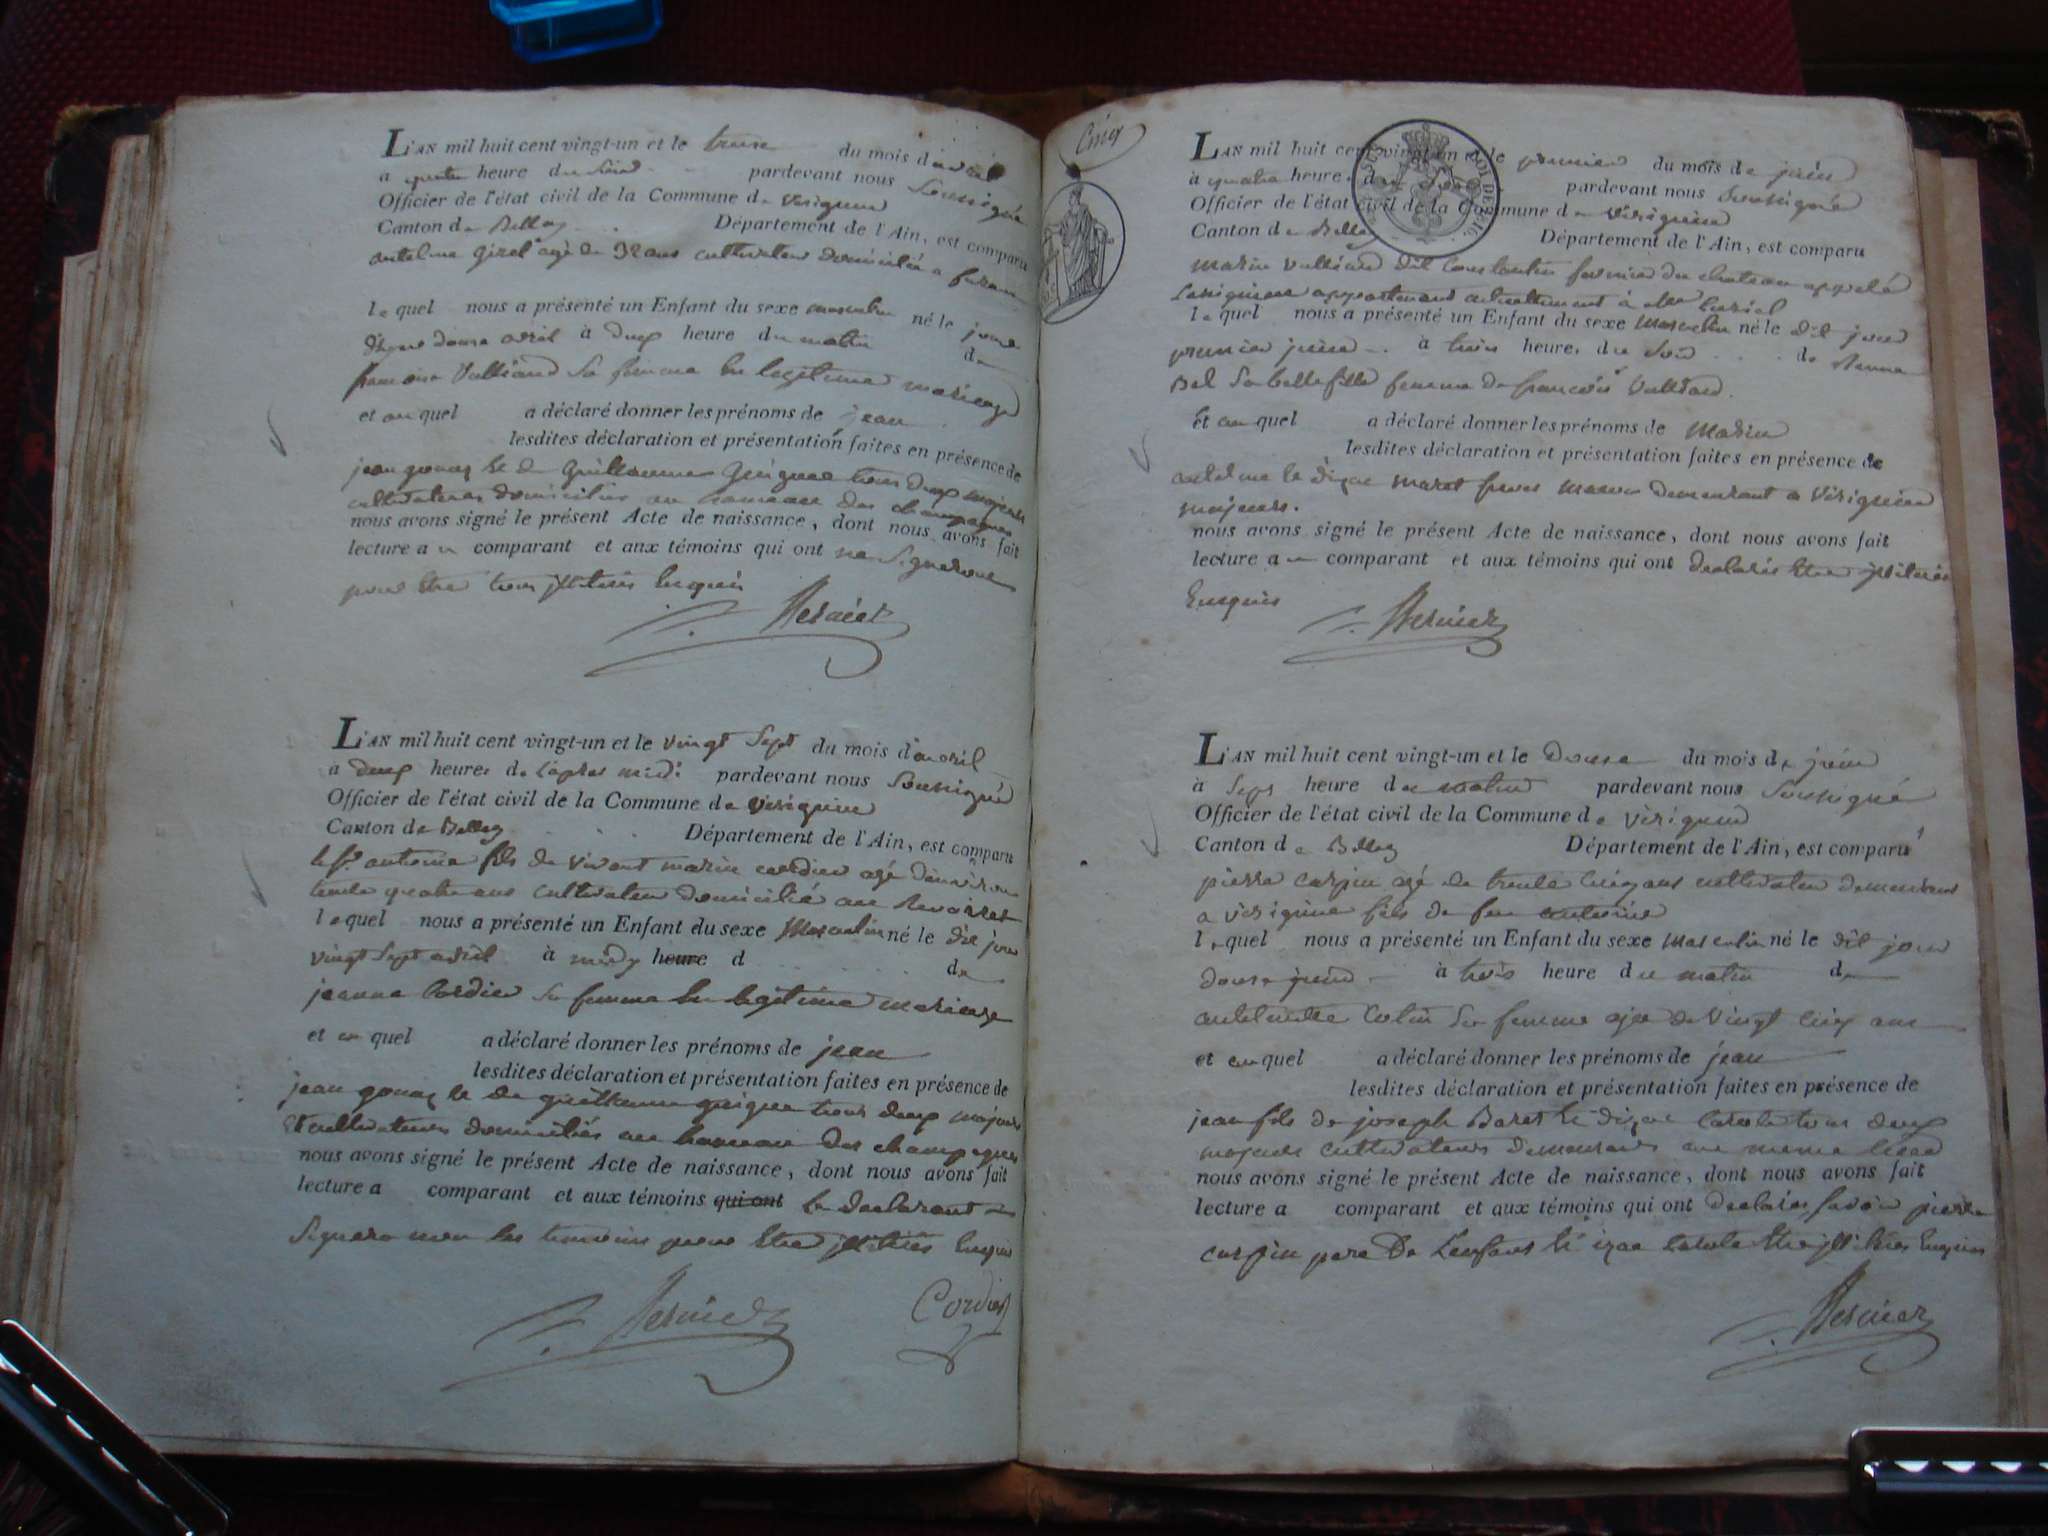 L'AN mil huit cent vingt-un et le treise du mois d'avril
a quatre heure du soir pardevant nous Soussigné
Officier de l'état civil de la Commune de virignin
Canton de Belley Département de l'Ain, est comparu
antelme Girel agé de 32 ans cultivateur domicilié a
le quel nous a présenté un Enfant du sexe masculin né le jour
d'hyer douse avril à deux heure du matin de
francoise Vulliand Sa femme En legitime mariage
et au quel a déclaré donner les prénoms de jean
lesdites déclaration et présentation faites en présence de
jean gonaz et de Guillaume Guigue tous deux majeurs
cultivateurs domiciliés au hameau des champagnes
nous avons signé le présent Acte de naissance, dont nous avons fait
lecture au comparant et aux témoins qui ont ne Signeront
pour Etre tous illiterés Enquis
Mernier
L'AN mil huit cent vingt-un et le vingt Sept du mois d'avril
a deux heures de l'apres midi pardevant nous Soussigné
Officier de l'état civil de la Commune de virignin
Canton de Belley Département de l'Ain, est comparu
le Sr antoine fils de vivant marin cordier agé d'environ
trente quatre ans cultivateur domicilié au
le quel nous a présenté un Enfant du sexe Masculin né le dit jour
vingt Sept avril à midy heure d de
jeanne Cordier Sa femme En legitime mariage
et au quel a déclaré donner les prénoms de jean
lesdites déclaration et présentation faites en présence de
jean gonaz et de guillaume guigue tous deux majeurs
Et cultivateurs domiciliés au hameau des champagnes
nous avons signé le présent Acte de naissance, dont nous avons fait
lecture a comparant et aux témoins qui ont le declarant
Signera non les temoins pour Etre illiterés Enquis
Mernier Cordier
Cinq
L'AN mil huit cent vingt-un et le premier du mois de juin
à quatre heure du Soir pardevant nous Soussigné
Officier de l'état civil de la Commune de virignin
Canton de Belley Département de l'Ain, est comparu
marin Vulliand dit Constantin fermier du chateau appelé
appartenant actuellement à
le quel nous a présenté un Enfant du sexe Masculin né le dit jour
premier juin à trois heures du Soir de
Bal Sa belle fille femme de francois Vulliand
Et au quel a déclaré donner les prénoms de Marin
lesdites déclaration et présentation faites en présence de
antelme et maret freres demeurant a Virignin
majeurs.
nous avons signé le présent Acte de naissance, dont nous avons fait
lecture au comparant et aux témoins qui ont declarés Etre illiterés
Enquis
Mernier
L'AN mil huit cent vingt-un et le Douse du mois de juin
à Sept heure du matin pardevant nous Soussigné
Officier de l'état civil de la Commune de virignin
Canton de Belley Département de l'Ain, est comparu
pierre curpin agé de trente Cinq ans cultivateur demeurant
a virignin fils de feu antoine
le quel nous a présenté un Enfant du sexe Masculin né le dit jour
douse juin à trois heure du matin de
Sa femme agée de Vingt Cinq ans
et au quel a déclaré donner les prénoms de jean
lesdites déclaration et présentation faites en présence de
jean fils de joseph Baret et tous deux
majeurs cultivateurs demeurant au meme lieu
nous avons signé le présent Acte de naissance, dont nous avons fait
lecture a comparant et aux témoins qui ont declarés Savoir pierre
curpin pere De L'enfant Etre illiterés Enquis
Mernier